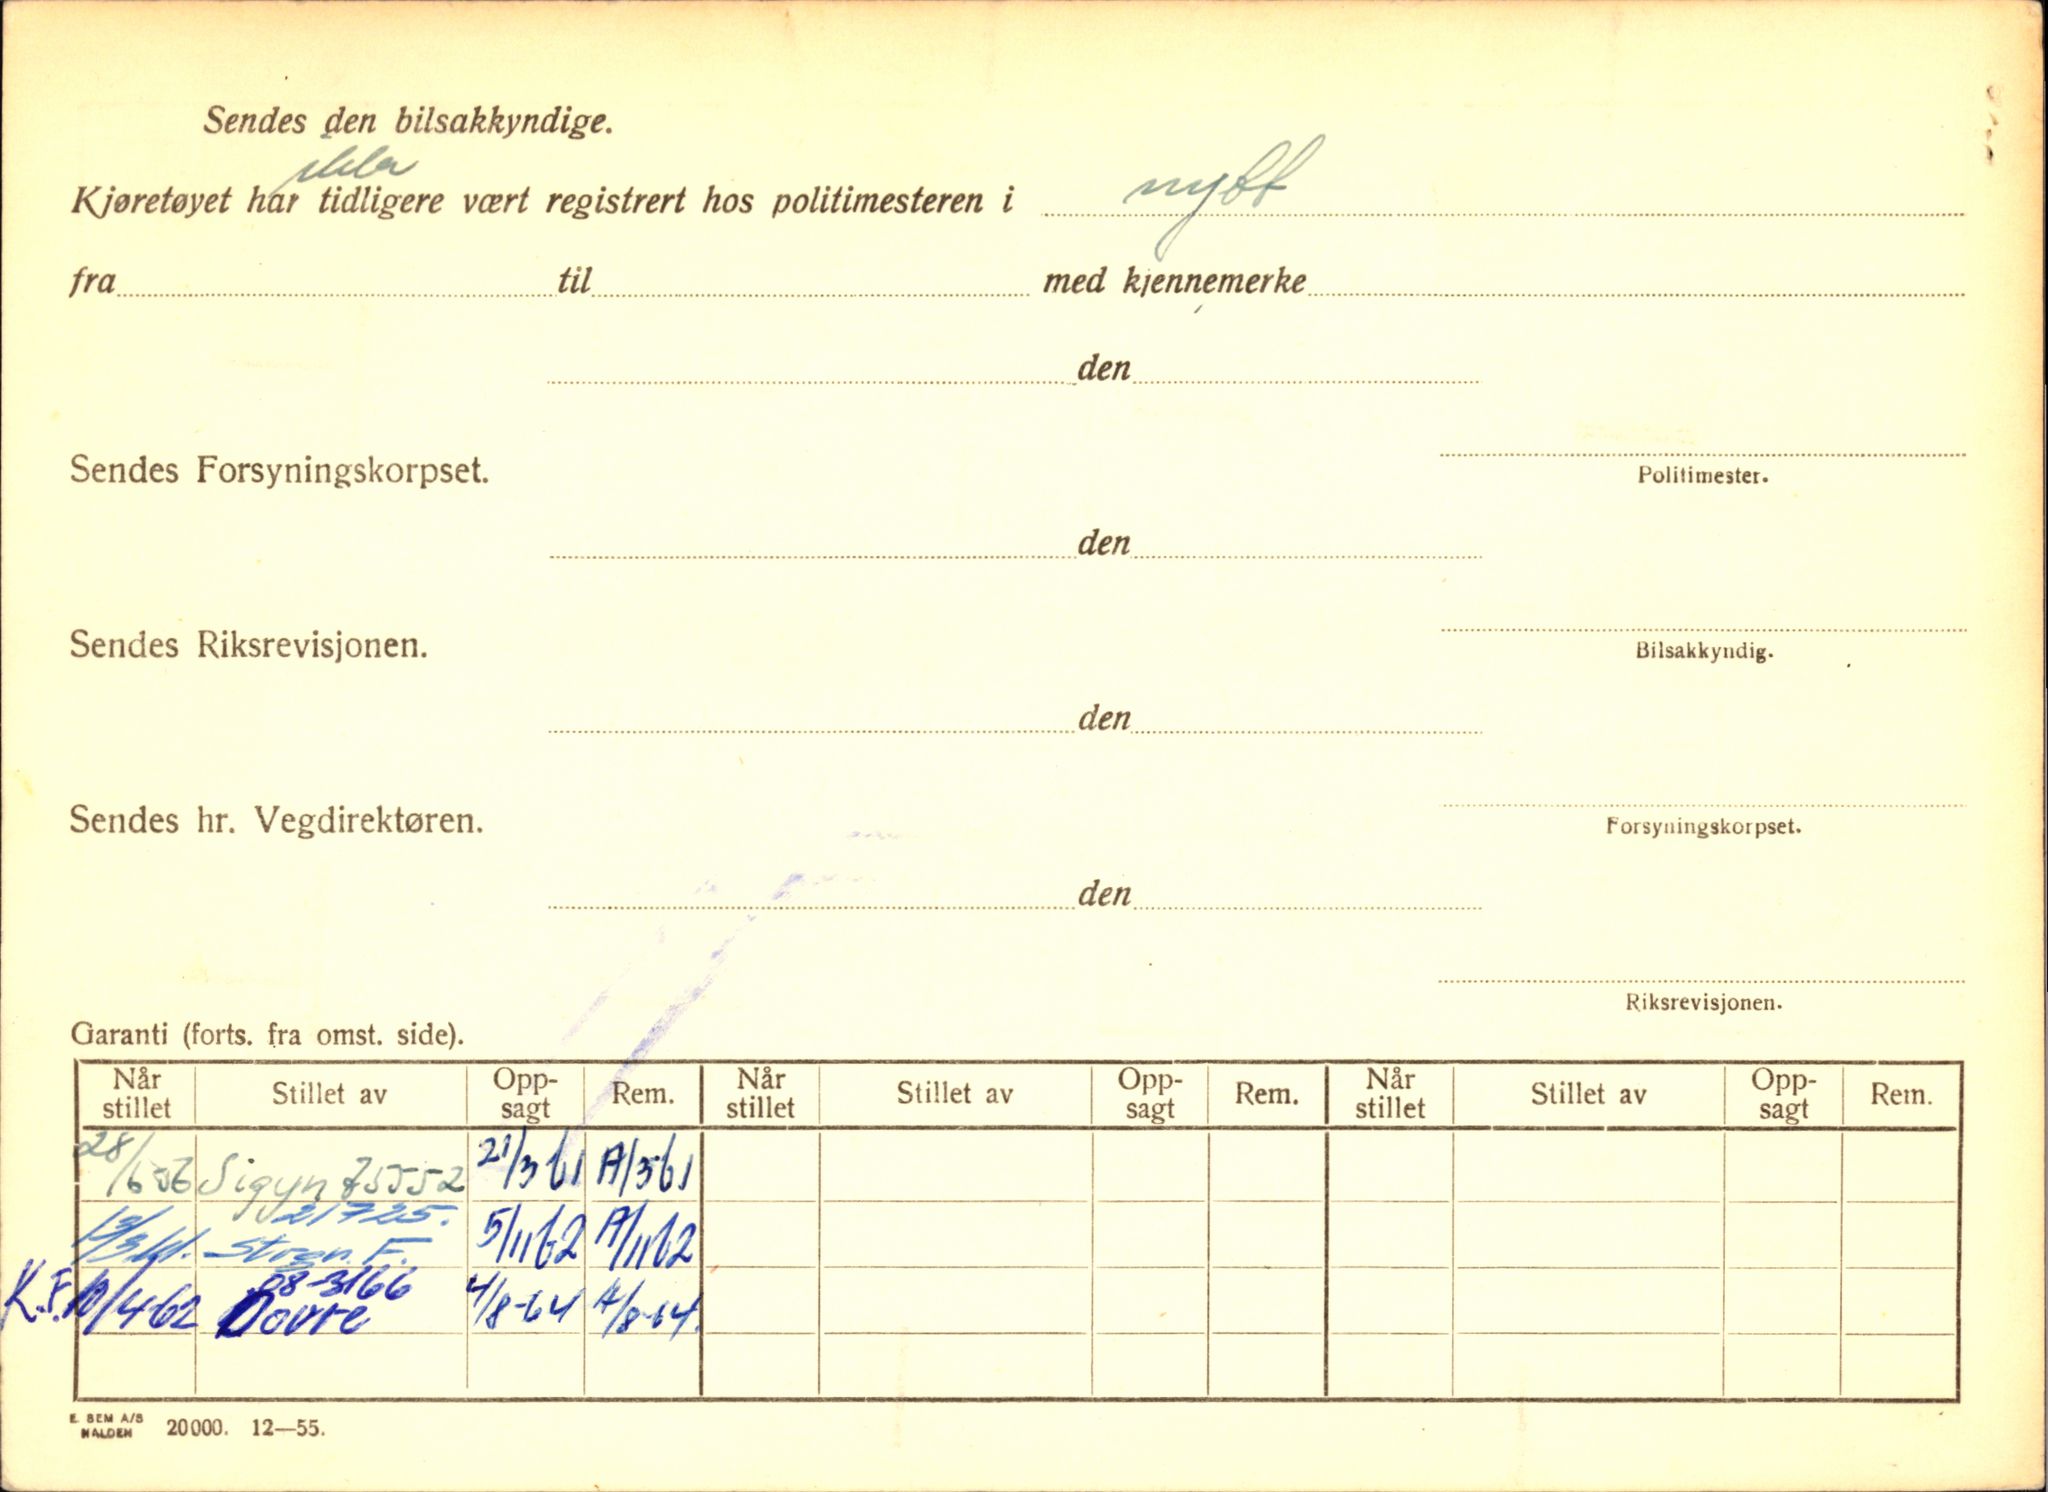 Sendes den bilsakkyndige.
ikke
Kjøretøyet har tidligere vært registrert hos politimesteren i nytt
fra til med kjennemerke
den
Sendes Forsyningskorpset.
Politimester.
den
Sendes Riksrevisjonen.
Bilsakkyndig.
den
Sendes hr. Vegdirektøren.
Forsyningskorpset.
den
Riksrevisjonen.
Garanti (forts. fra omst. side).
Når stillet Stillet av Opp-sagt Rem. Når stillet Stillet av Opp-sagt Rem. Når stillet Stillet av Opp-sagt Rem.
28/6-56 Sigyn 75552 21/3 61 A/3 61
21725.
13/3 61. Stran. F. 5/11 62 A/11 62
98-3166
K.F. 10/4-62 Dovre 4/8-64 A/8-64.
E. SEM A/S
HALDEN 20000. 12—55.